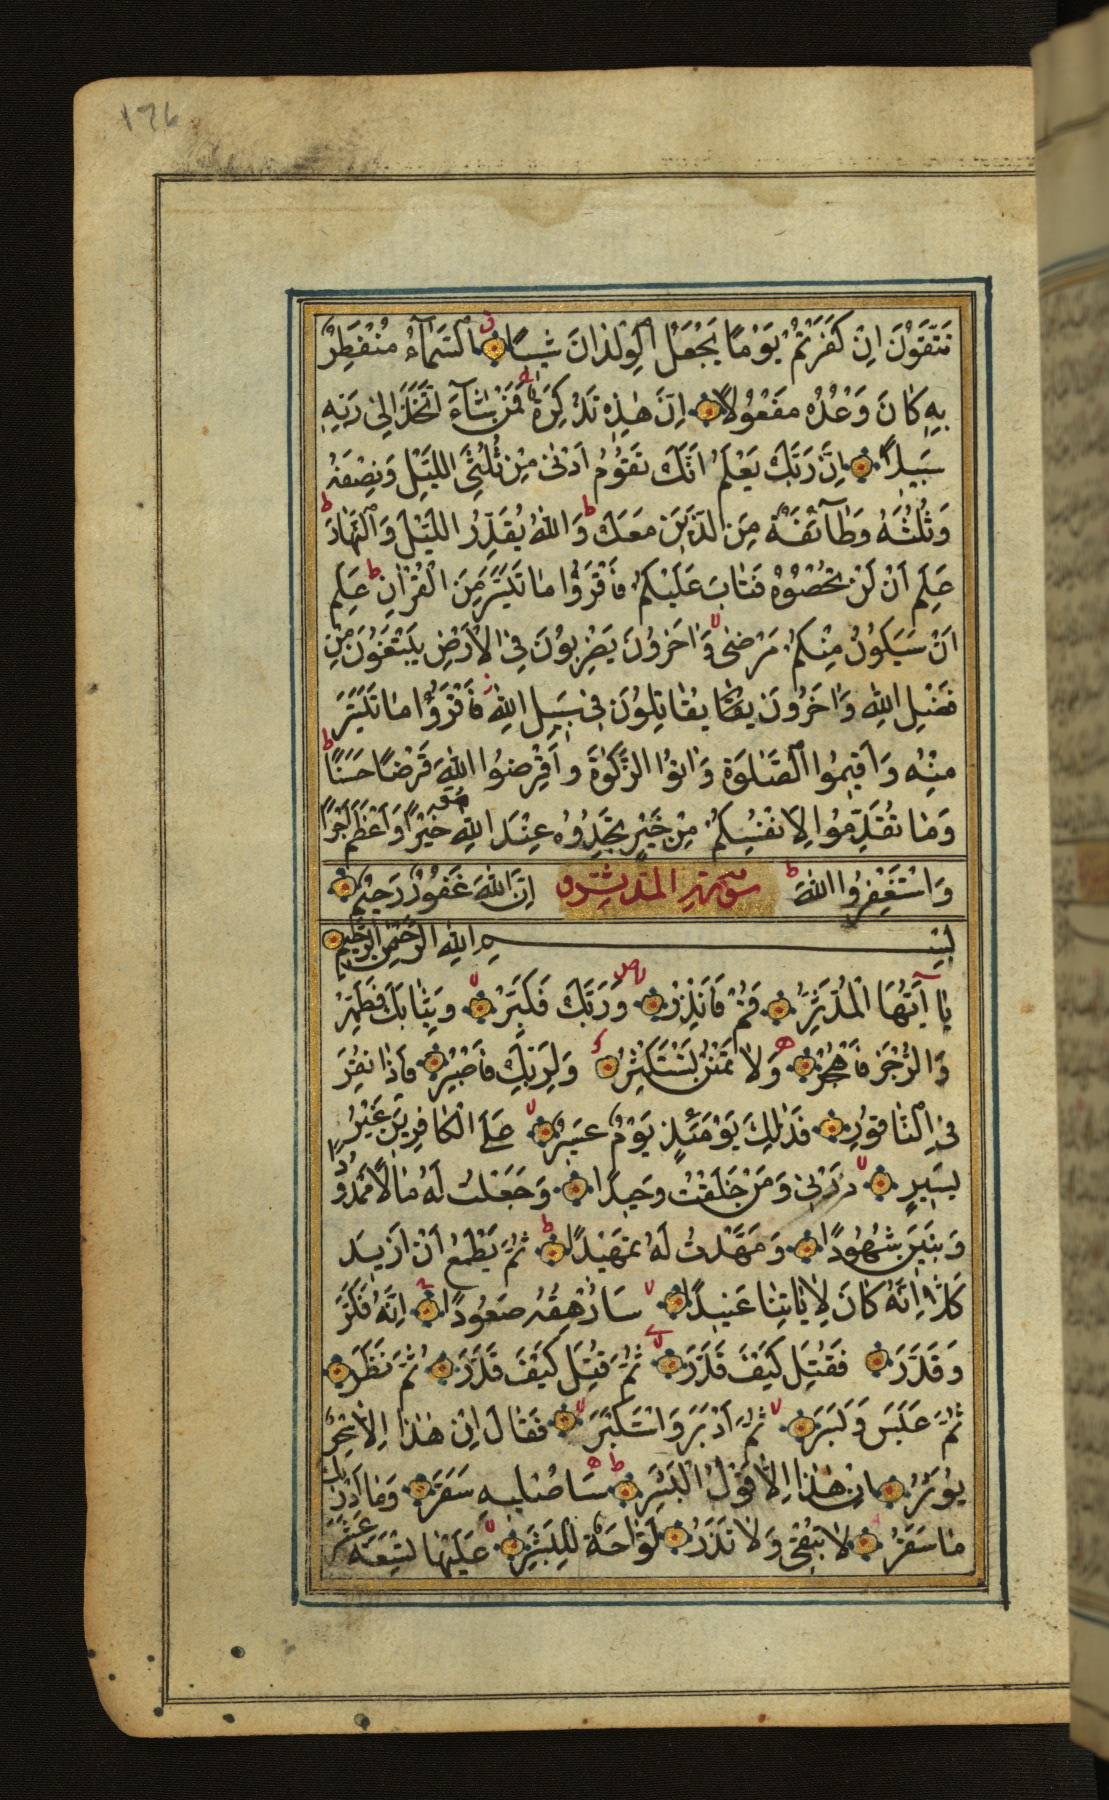 ١٦٧
تَتَّقُونَ اِنْ كَفَرْتُمْ يَوْمًا يَجْعَلُ الْوِلْدَانَ شِيبًا اَلسَّمَآءُ مُنْفَطِرٌ
بِهِ كَانَ وَعْدُهُ مَفْعُولًا اِنَّ هٰذِهِ تَذْكِرَةٌ فَمَنْ شَآءَ اتَّخَذَ اِلىٰ رَبِّهِ
سَبِيلًا اِنَّ رَبَّكَ يَعْلَمُ اَنَّكَ تَقُومُ اَدْنىٰ مِنْ ثُلُثَيِ اللَّيْلِ وَنِصْفَهُ
وَثُلُثَهُ وَطَآئِفَةٌ مِنَ الَّذِينَ مَعَكَ ط وَاللهُ يُقَدِّرُ اللَّيْلَ وَالنَّهَارَ ط
عَلِمَ اَنْ لَنْ تُحْصُوهُ فَتَابَ عَلَيْكُمْ فَاقْرَؤُا مَا تَيَسَّرَ مِنَ الْقُرْاٰنِ ط عَلِمَ
اَنْ سَيَكُونُ مِنْكُمْ مَرْضىٰ لا وَاٰخَرُونَ يَضْرِبُونَ فِي الْاَرْضِ يَبْتَغُونَ مِنْ
فَضْلِ اللهِ وَاٰخَرُونَ يُقَاتِلُونَ فِي سَبِيلِ اللهِ ز فَاقْرَؤُا مَا تَيَسَّرَ
مِنْهُ وَاَقِيمُوا الصَّلٰوةَ وَاٰتُوا الزَّكٰوةَ وَاَقْرِضُوا اللهَ قَرْضًا حَسَنًا ط
وَمَا تُقَدِّمُوا لِاَنْفُسِكُمْ مِنْ خَيْرٍ تَجِدُوهُ عِنْدَ اللهِ هُوَ خَيْرًا وَاَعْظَمَ اَجْرًا
وَاسْتَغْفِرُوا اللهَ ط سورة المدثر اِنَّ اللهَ غَفُورٌ رَحِيمٌ
بِسْمِ اللهِ الرَّحْمٰنِ الرَّحِيمِ
يَا اَيُّهَا الْمُدَّثِّرُ قُمْ فَاَنْذِرْ وَرَبَّكَ فَكَبِّرْ وَثِيَابَكَ فَطَهِّرْ
وَالرُّجْزَ فَاهْجُرْ وَلَا تَمْنُنْ تَسْتَكْثِرُ وَلِرَبِّكَ فَاصْبِرْ فَاِذَا نُقِرَ
فِي النَّاقُورِ فَذٰلِكَ يَوْمَئِذٍ يَوْمٌ عَسِيرٌ عَلَى الْكَافِرِينَ غَيْرُ
يَسِيرٍ ذَرْنِي وَمَنْ خَلَقْتُ وَحِيدًا وَجَعَلْتُ لَهُ مَالًا مَمْدُودًا
وَبَنِينَ شُهُودًا وَمَهَّدْتُ لَهُ تَمْهِيدًا ثُمَّ يَطْمَعُ اَنْ اَزِيدَ
كَلَّا اِنَّهُ كَانَ لِاٰيَاتِنَا عَنِيدًا سَاُرْهِقُهُ صَعُودًا اِنَّهُ فَكَّرَ
وَقَدَّرَ فَقُتِلَ كَيْفَ قَدَّرَ ثُمَّ قُتِلَ كَيْفَ قَدَّرَ ثُمَّ نَظَرَ
ثُمَّ عَبَسَ وَبَسَرَ ثُمَّ اَدْبَرَ وَاسْتَكْبَرَ فَقَالَ اِنْ هٰذَا اِلَّا سِحْرٌ
يُؤْثَرُ اِنْ هٰذَا اِلَّا قَوْلُ الْبَشَرِ سَاُصْلِيهِ سَقَرَ وَمَا اَدْرٰيكَ
مَا سَقَرُ لَا تُبْقِي وَلَا تَذَرُ لَوَّاحَةٌ لِلْبَشَرِ عَلَيْهَا تِسْعَةَ عَشَرَ